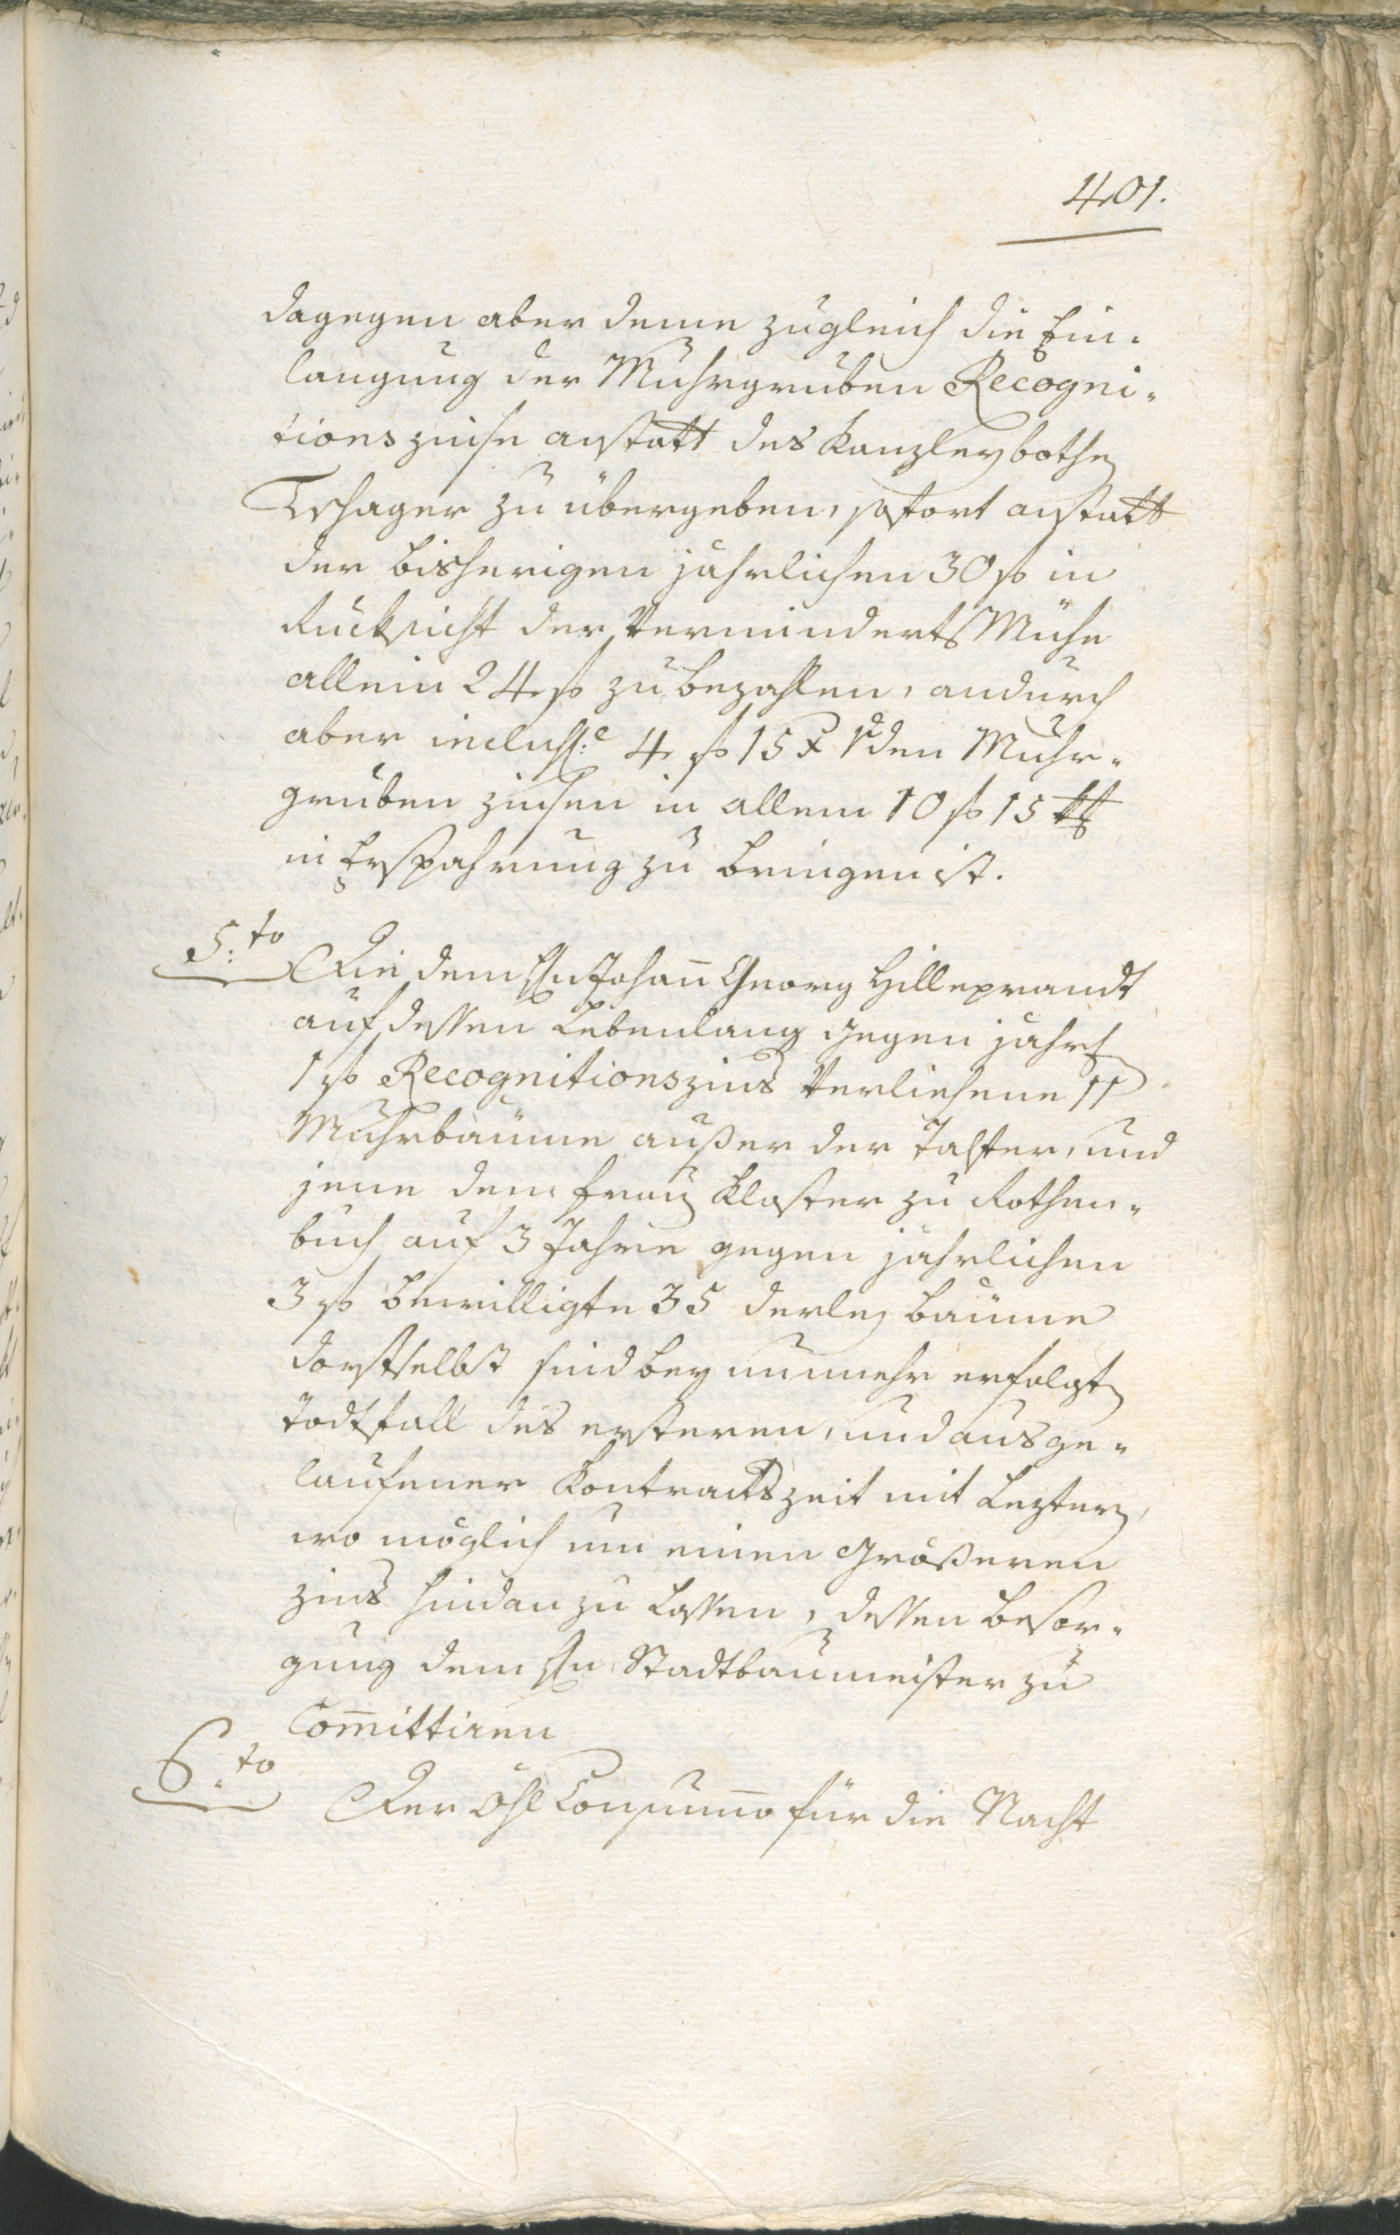 401.
dagegen aber deme zugleich die Ein„
langung der Muhrgruben Recogni„
tionszinse anstatt des Kanzleybothen
Tschager zu übergeben, sofort anstatt
der bisherigen jährlichen 30 f in
Rücksicht der Verminderts Mühe
allein 24 f zu bezahlen, andurch
aber inclus.e 4 f 15 x den Muhr„
gruben zinsen in allem 10 f 15 x
in Ersparhrung zu bringen ist.
5.to Die dem Hn Johann Georg Hilleprandt
auf dessen Lebenlang gegen jährl
1 f Recognitionszins Verliehene 11
Muhrbäume außer der Talfer, und
jene dem frauen Kloster zu Rothen„
buch auf 3 Jahre gegen jährlichen
3 f bewilligte 35 derley bäume
dortselbst sind bey nunmehr erfolgten
Todtfall des ersteren, und ausge„
laufener Kontractszeit mit Leztern,
wo möglich um einen Größeren
Zins hindan zu lassen, dessen besor„
gung dem Hn Stadtbaumeister zu
Committiren
6.to Der Öhl Consummo für die Nacht